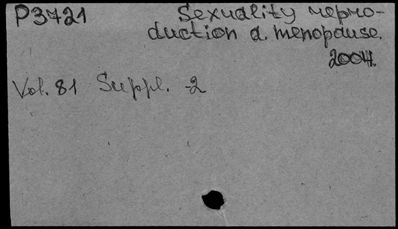 P3721 Sexuality repro-
duction a. menopause.
2004.
Vol. 81 Suppl. 2